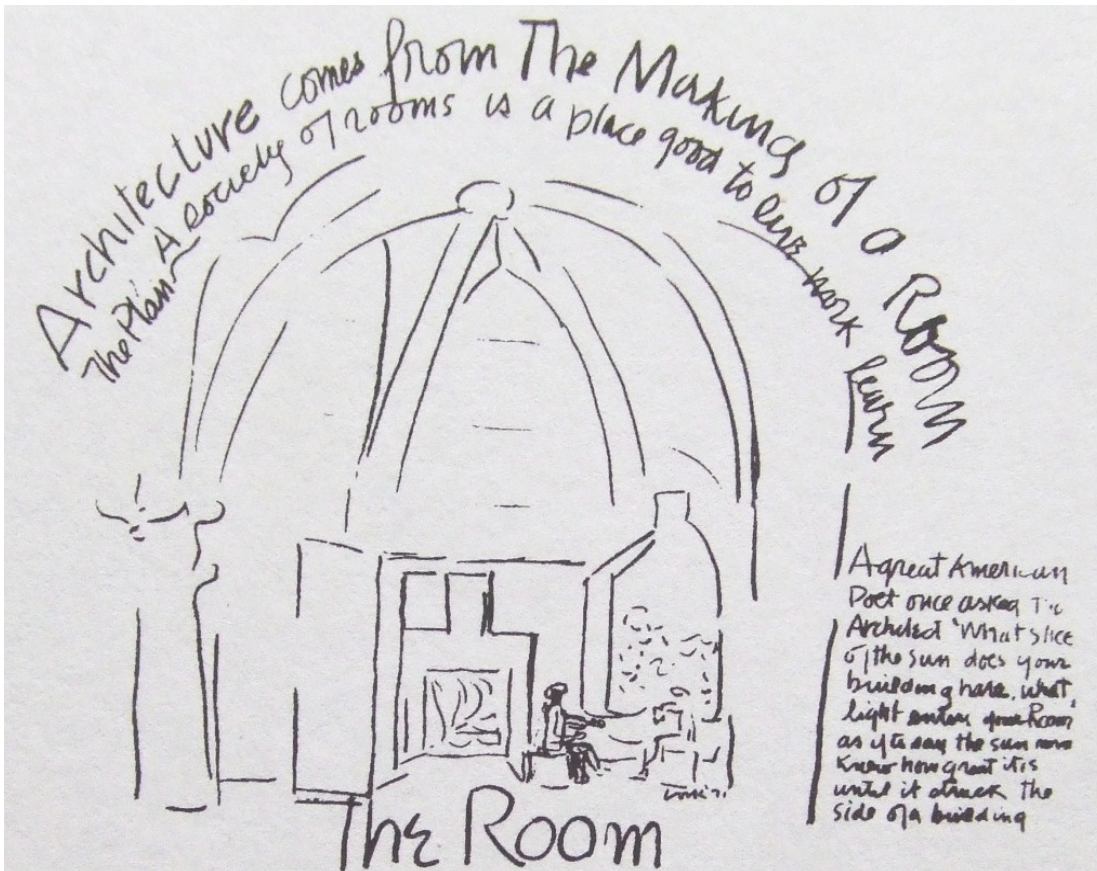 Architecture comes from The Making of a Room
The Plan A society of rooms is a place good to live work learn
A great American
Poet once asked The
Architect 'What slice
of the sun does your
building have, what
light enters your Room
as if to say the sun never
knew how great it is
until it struck the
side of a building
The Room